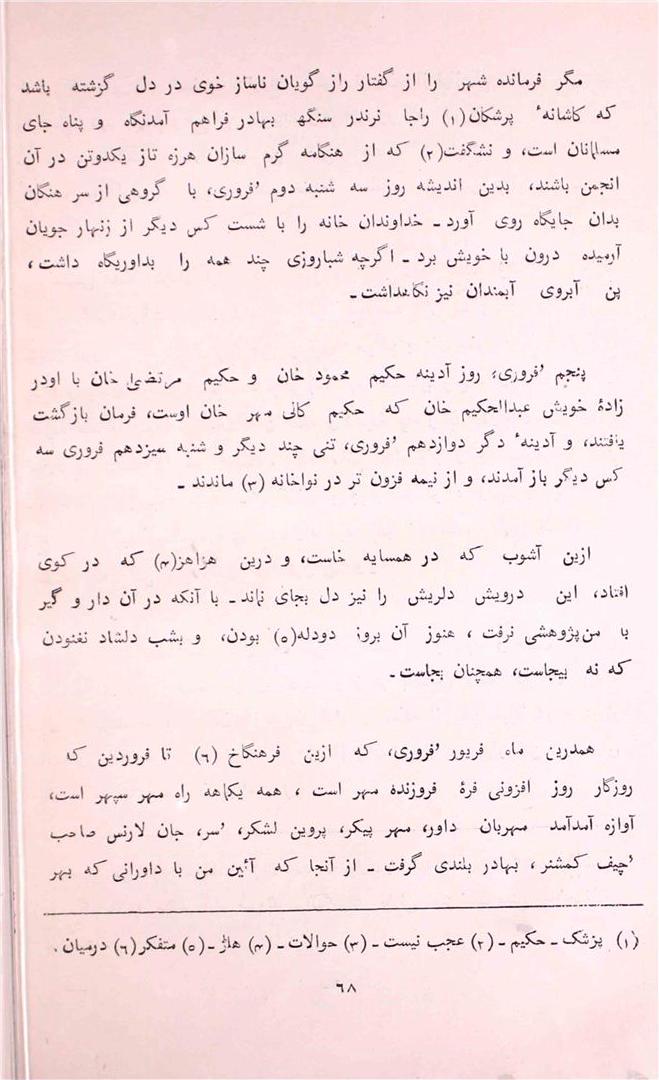 مگر فرمانده شهر را از گفتار راز گویان ناساز خوی در دل گزشته باشد
که کاشانهٔ پزشکان (۱) راجا نرندر سنگھ بهادر فراهم آمدنگاه و پناه جای
مسلمانان است، و نشگفت (۲) که از هنگامه گرم سازان هرزه تاز یکدوتن در آن
انجمن باشند، بدین اندیشه روز سه شنبه دوم 'فروری، با گروهی از سر هنگان
بدان جایگاه روی آورد ـ خداوندان خانه را با شست کس دیگر از زنهار جویان
آرمیده درون با خویش برد ـ اگرچه شباروزی چند همه را بداوریگاه داشت،
پن آبروی آبمندان نیز نگاهداشت ـ
پنجم 'فروری، روز آدینه حکیم محمود خان و حکیم مرتضیٰ خان با اودر
زادهٔ خویش عبدالحکیم خان که حکیم کالی مهر خان اوست، فرمان بازگشت
یافتند، و آدینهٔ دگر دوازدهم 'فروری، تنی چند دیگر و شنبه سیزدهم فروری سه
کس دیگر باز آمدند، و از نیمه فزون تر در نواخانه (۳) ماندند ـ
ازین آشوب که در همسایه خاست، و درین هزاهز (۴) که در کوی
افتاد، این درویش دلریش را نیز دل بجای نماند ـ با آنکه در آن دار و گیر
با من پژوهشی نرفت، هنوز آن بروز دودله (۵) بودن، و بشب دلشاد نغنودن
که نه بیجاست، همچنان بجاست ـ
همدرین ماه فریور 'فروری، که ازین فرهنگاخ (۶) تا فروردین که
روزگار روز افزونی فرهٔ فروزنده مهر است، همه یکماهه راه مهر سپهر است،
آوازه آمدآمد مهربان داور، مهر پیکر، پروین لشکر، 'سر، جان لارنس صاحب
'چیف کمشنر، بهادر بلندی گرفت ـ از آنجا که آئین من با داورانی که بهر
(۱) پزشک ـ حکیم ـ (۲) عجب نیست ـ (۳) حوالات ـ (۴) هلڑ ـ (۵) متفکر (۶) درمیان .
۶۸